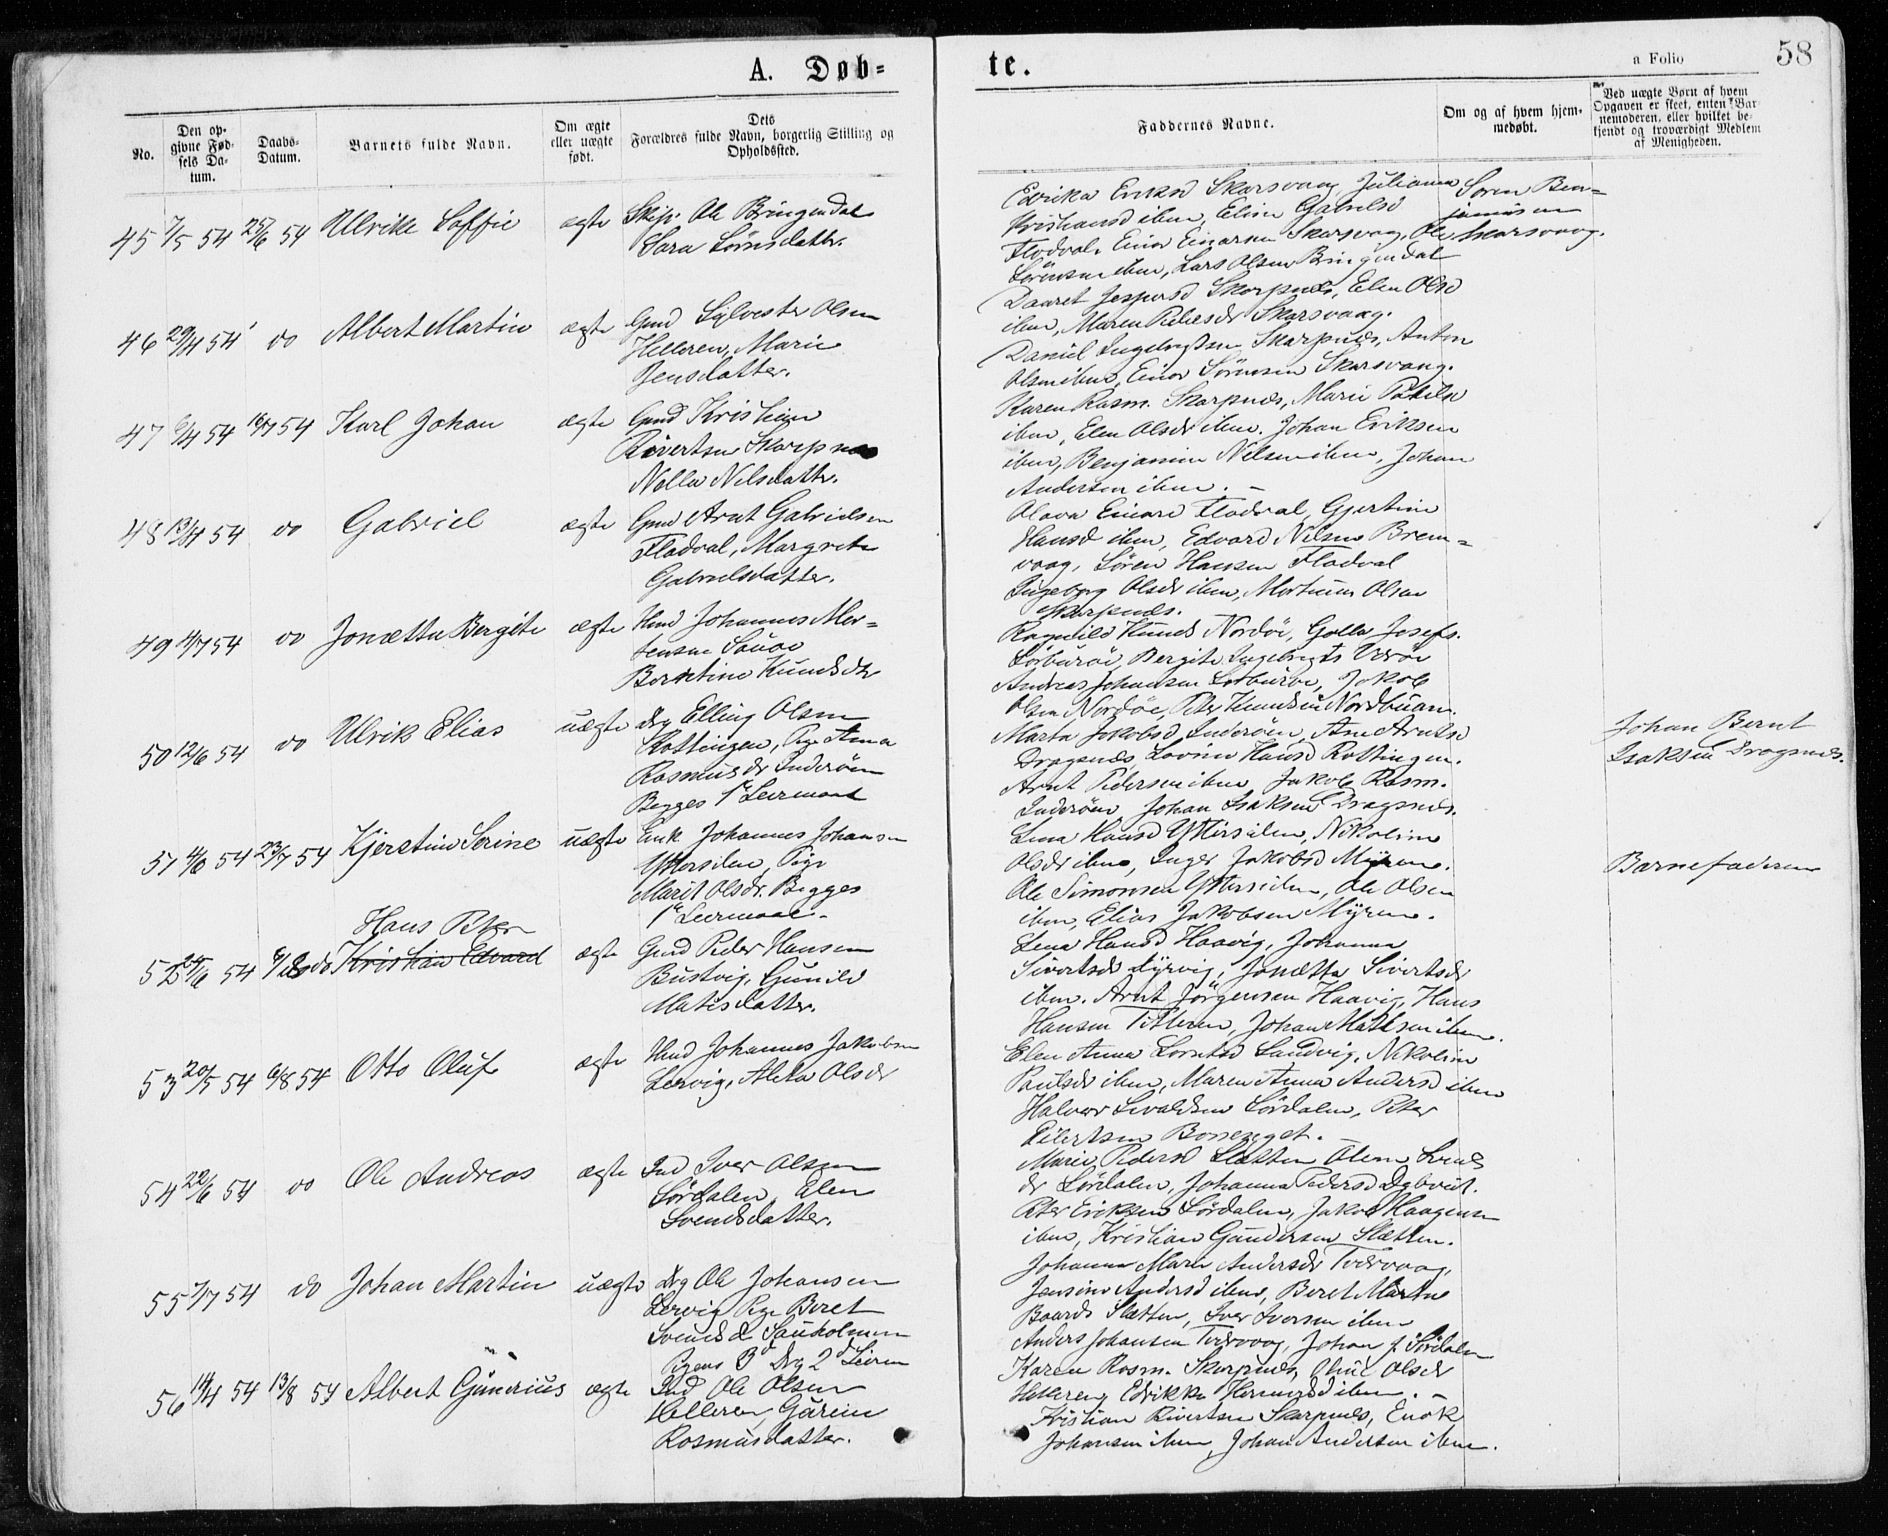 A. Døb=
te.
a Folio
58
No.
Den op-
givne Fød-
sels Da-
tum.
Daabs-
Datum.
Barnets fulde Navn.
Om ægte
eller uægte
født.
Dets
Forældres fulde Navn, borgerlig Stilling og
Opholdssted.
Faddernes Navne.
Om og af hvem hjem-
medøbt.
Ved uægte Børn af hvem
Opgaven er skeet, enten Bar-
nemoderen, eller hvilket be-
kjendt og troværdigt Medlem
af Menigheden.
45 7/5 54 25/6 54 Ulrike Soffie ægte Skip. Ole Bringendal
Sara Sørnsdatter.
Edvika Eriksd Skarsvaag Juliana
Kristiansd ibm, Elina Gabrielsd
Flodval. Einar Einarsen Skarsvaag, Ole
Sørensen ibm, Lars Olsen Bringendal
Søren Ben=
jaminsen
Skarsvaag.
46 29/4 54 do Albert Martin ægte Gmd Sylvester Olsen
Helleren, Marie
Jensdatter.
Daaret Jespersd Skarpnes, Elen Olsd
ibm, Maren Skarsvaag.
Daniel Ingebrigtsen Skarpnes, Anton
Olsen ibm, Einar Sørensen Skarsvaag.
47 6/4 54 16/7 54 Karl Johan ægte Gmd Kristian
Rivertsen Skarpnes
Nella Nilsdatter.
Karen Rasm. Skarpnes, Marie
ibm, Elen Olsdr ibm. Johan Eriksen
ibm, Benjamin Nilsen ibm, Johan
Andersen ibm. –
48 13/4 54 do Gabriel ægte Gmd Arnt Gabrielsen
Flodval, Margrete
Gabrielsdatter.
Olava Einard Flodval, Gjertine
Hansd ibm, Edvard Nilsen Brem=
vaag, Søren Hansen Flodval
Ingeborg Olsdr ibm, Olsen
Skarpnes.
49 4/7 54 do Jonetta Bergite ægte Hmd Johannes Mor=
tensen
Berntine Knudsdtr
Ragnild Knuds Nordøi, Golla Josefs.
Sørburøi, Bergite Ingebrigts
Andreas Johansen Sørburøi, Jakob
Olsen Nordøi, Peter Knudsen Nordbuan.
50 12/6 54 do Ulrik Elias uægte Ung Elling Olsen
Rottingen, Pige Anna
Rasmusdr Inderøen
Begges 1ste Leiermaal
Marta Jakobsd Inderøen, Ane Arntsd
Dragsnes, Lovise Hansd Rottingen.
Arnt Pedersen ibm Jakob Rasm.
Inderøen Johan Isaksen Dragsnes.
Johan Bernt
Isaksen Dragsnes.
51 4/6 54 23/7 54 Kjerstine Serine uægte Enk. Johannes Johansen
Yttersiden, Pige
Marit Olsdr. Begges
1ste Leiermaal.
Lina Hansd Yttersiden, Nikoline
Olsdr ibm, Inger Jakobsd Myren.
Ole Simonsen Yttersiden, Ole Olsen
ibm, Elias Jakobsen Myren.
Barnefaderen
Hans Peter
52 24/6 54 6/8 54 Kristian Edvard ægte Gmd Peder Hansen
Bustvig, Gunild
Matisdatter.
Lina Hansd Haavig, Johanna
Sivertsdr Dyrvig, Jonetta Sivertsdr
ibm. Arnt Jørgensen Haavig, Hans
Hansen Titteren, Johan ibm.
53 20/5 54 6/8 54 Otto Oluf ægte Hmd Johannes Jakobsen
Lervig, Aleta Olsdr
Elen Anna Lorntsd Sandvig, Nikoline
Paulsdr ibm, Maren Anna Andersd ibm
Halvor Sivaldsen Sørdalen, Peter
54 22/6 54 do Ole Andreas ægte Ind Iver Olsen
Sørdalen, Elen
Svendsdatter.
Marie Pedersd Slætten Olena Svends
dr Sørdalen, Johanna Pedersd Dybvad.
Peter Eriksen Sørdalen, Jakob Haagensen
ibm, Kristian Gundersen Slætten.
55 7/7 54 do Johan Martin uægte Ung Ole Johansen
Lervig Pige Beret
Svendsdr Sauholmen
Pigens 3d Ung 2d Leierm
Johanna Marie Andersdr Tverrvaag,
Jensine Andersd ibm, Beret
Baards Slætten, Iver Iversen ibm
Anders Johansen Tverrvaag, Johan J. Sørdalen
56 14/4 54 13/8 54 Albert Gunerius ægte Ind Ole Olsen
Helleren, Gurine
Rasmusdatter.
Karen Rasm. Skarpnes, Olsdr
Helleren, Edrikke ibm. –
Kristian Rivertsen Skarpnes, Enok
Johansen ibm, Johan Andersen ibm.